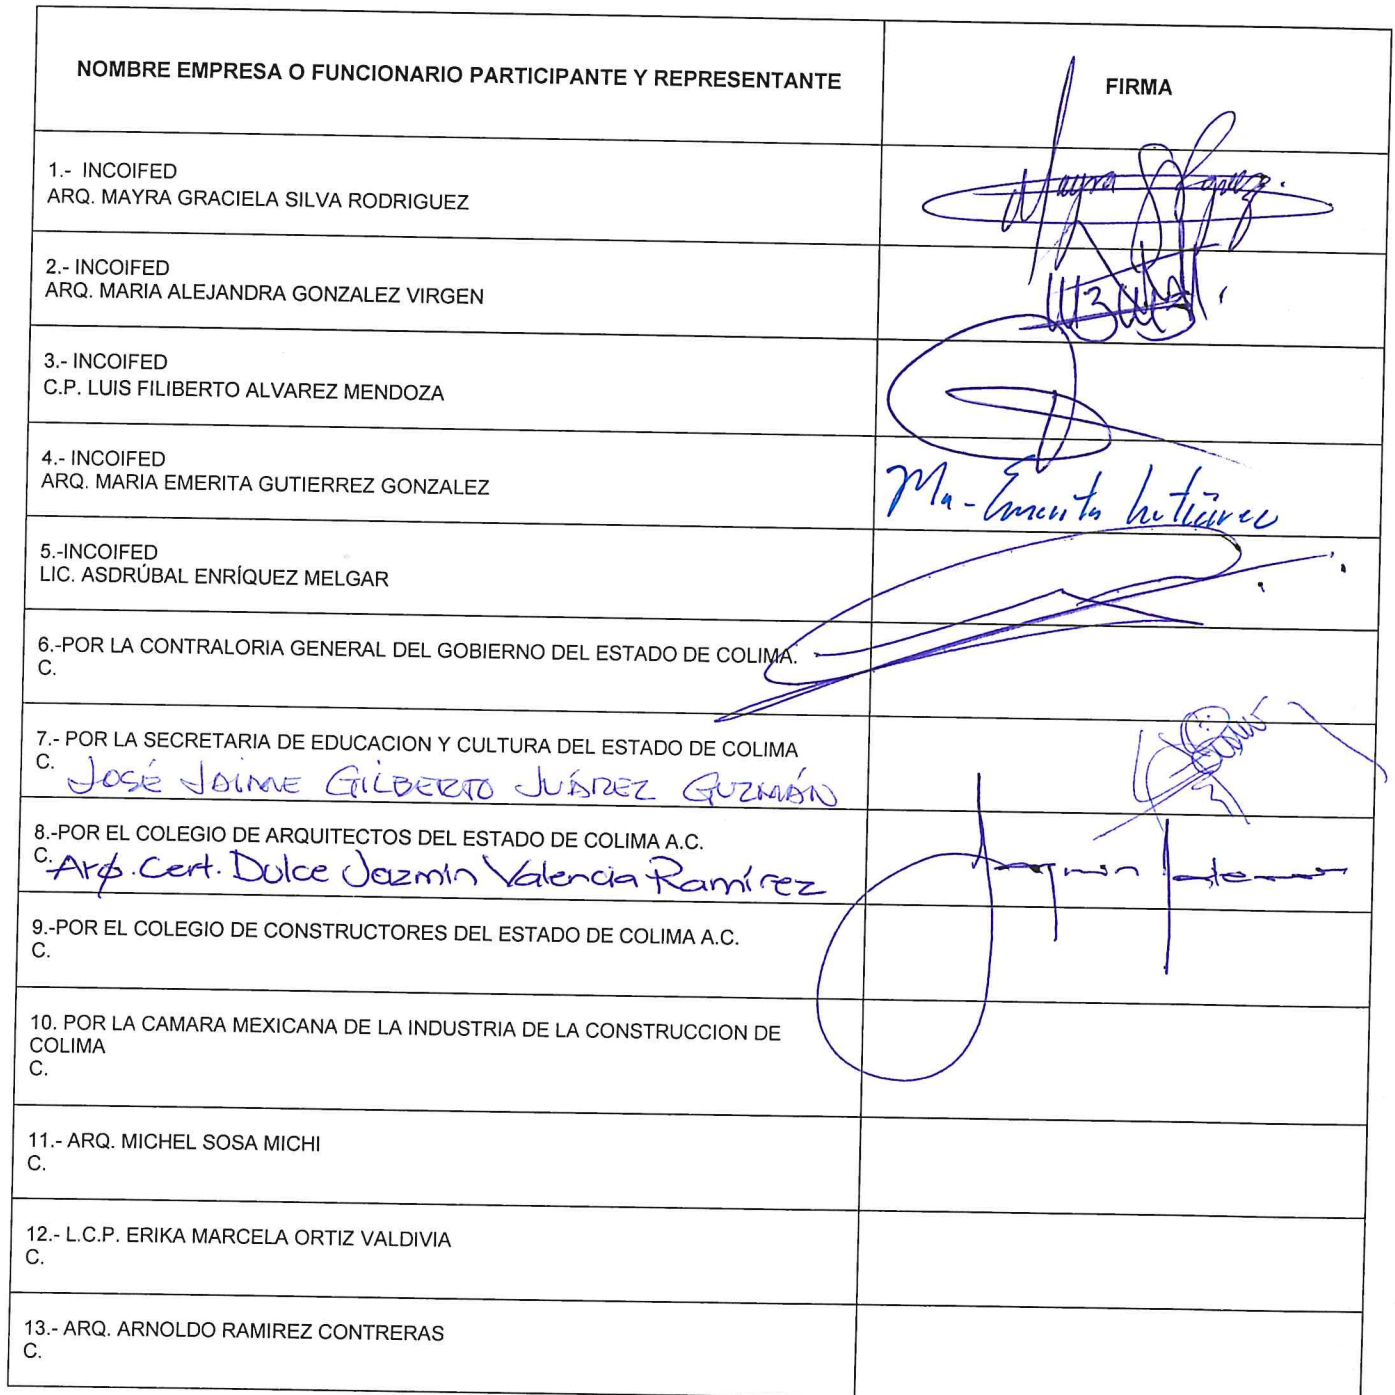 NOMBRE EMPRESA O FUNCIONARIO PARTICIPANTE Y REPRESENTANTE
FIRMA
1.- INCOIFED
ARQ. MAYRA GRACIELA SILVA RODRIGUEZ
Mayra
2.- INCOIFED
ARQ. MARIA ALEJANDRA GONZALEZ VIRGEN
3.- INCOIFED
C.P. LUIS FILIBERTO ALVAREZ MENDOZA
4.- INCOIFED
ARQ. MARIA EMERITA GUTIERREZ GONZALEZ
Ma-Emerita Gutiérrez
5.-INCOIFED
LIC. ASDRÚBAL ENRÍQUEZ MELGAR
6.-POR LA CONTRALORIA GENERAL DEL GOBIERNO DEL ESTADO DE COLIMA.
C.
7.- POR LA SECRETARIA DE EDUCACION Y CULTURA DEL ESTADO DE COLIMA
C. JOSÉ JAIME GILBERTO JUÁREZ GUZMÁN
8.-POR EL COLEGIO DE ARQUITECTOS DEL ESTADO DE COLIMA A.C.
C. Arq. Cert. Dulce Jazmín Valencia Ramírez
9.-POR EL COLEGIO DE CONSTRUCTORES DEL ESTADO DE COLIMA A.C.
C.
10. POR LA CAMARA MEXICANA DE LA INDUSTRIA DE LA CONSTRUCCION DE
COLIMA
C.
11.- ARQ. MICHEL SOSA MICHI
C.
12.- L.C.P. ERIKA MARCELA ORTIZ VALDIVIA
C.
13.- ARQ. ARNOLDO RAMIREZ CONTRERAS
C.